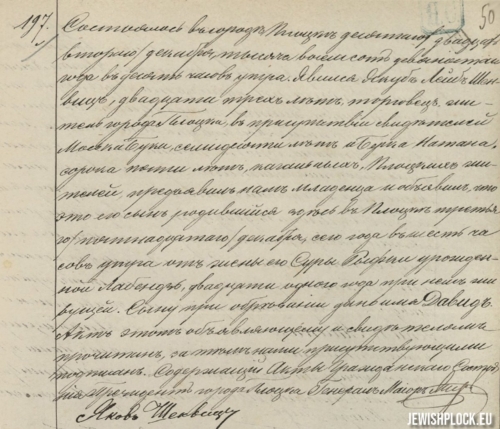 197.
50
Состоялось въ городѣ Плоцкѣ десятаго /двадцать
втораго/ декабря, тысяча восемьсотъ девяностаго
года въ десять часовъ утра. Явился Якубъ Лейбъ Шек-
вицъ, двадцати трехъ лѣтъ, торговецъ, жи-
тель города Плоцка, въ присутствіи свидѣтелей
Мосека Бука, семидесяти лѣтъ и Бука Натана
сорока пяти лѣтъ, Плоцкихъ жи-
телей, предъявилъ намъ младенца и объявилъ, что
это его сынъ родившійся здѣсь въ Плоцкѣ третья-
го /пятнадцатаго/ декабря, сего года въ шесть ча-
совъ утра отъ жены его Суры Рифки урожден-
ной Лабендзь, двадцати одного года при немъ жи-
вущей. Сыну при обрѣзаніи дано имя Давидъ
Актъ этотъ объявляющему и свидѣтелямъ
прочитанъ, за тѣмъ нами присутствующими
подписанъ. Содержащій Акты Гражданскаго Состоя-
нія Президентъ города Плоцка Генералъ Маіоръ
Яковъ Шеквицъ
JEWISHPLOCK.EU